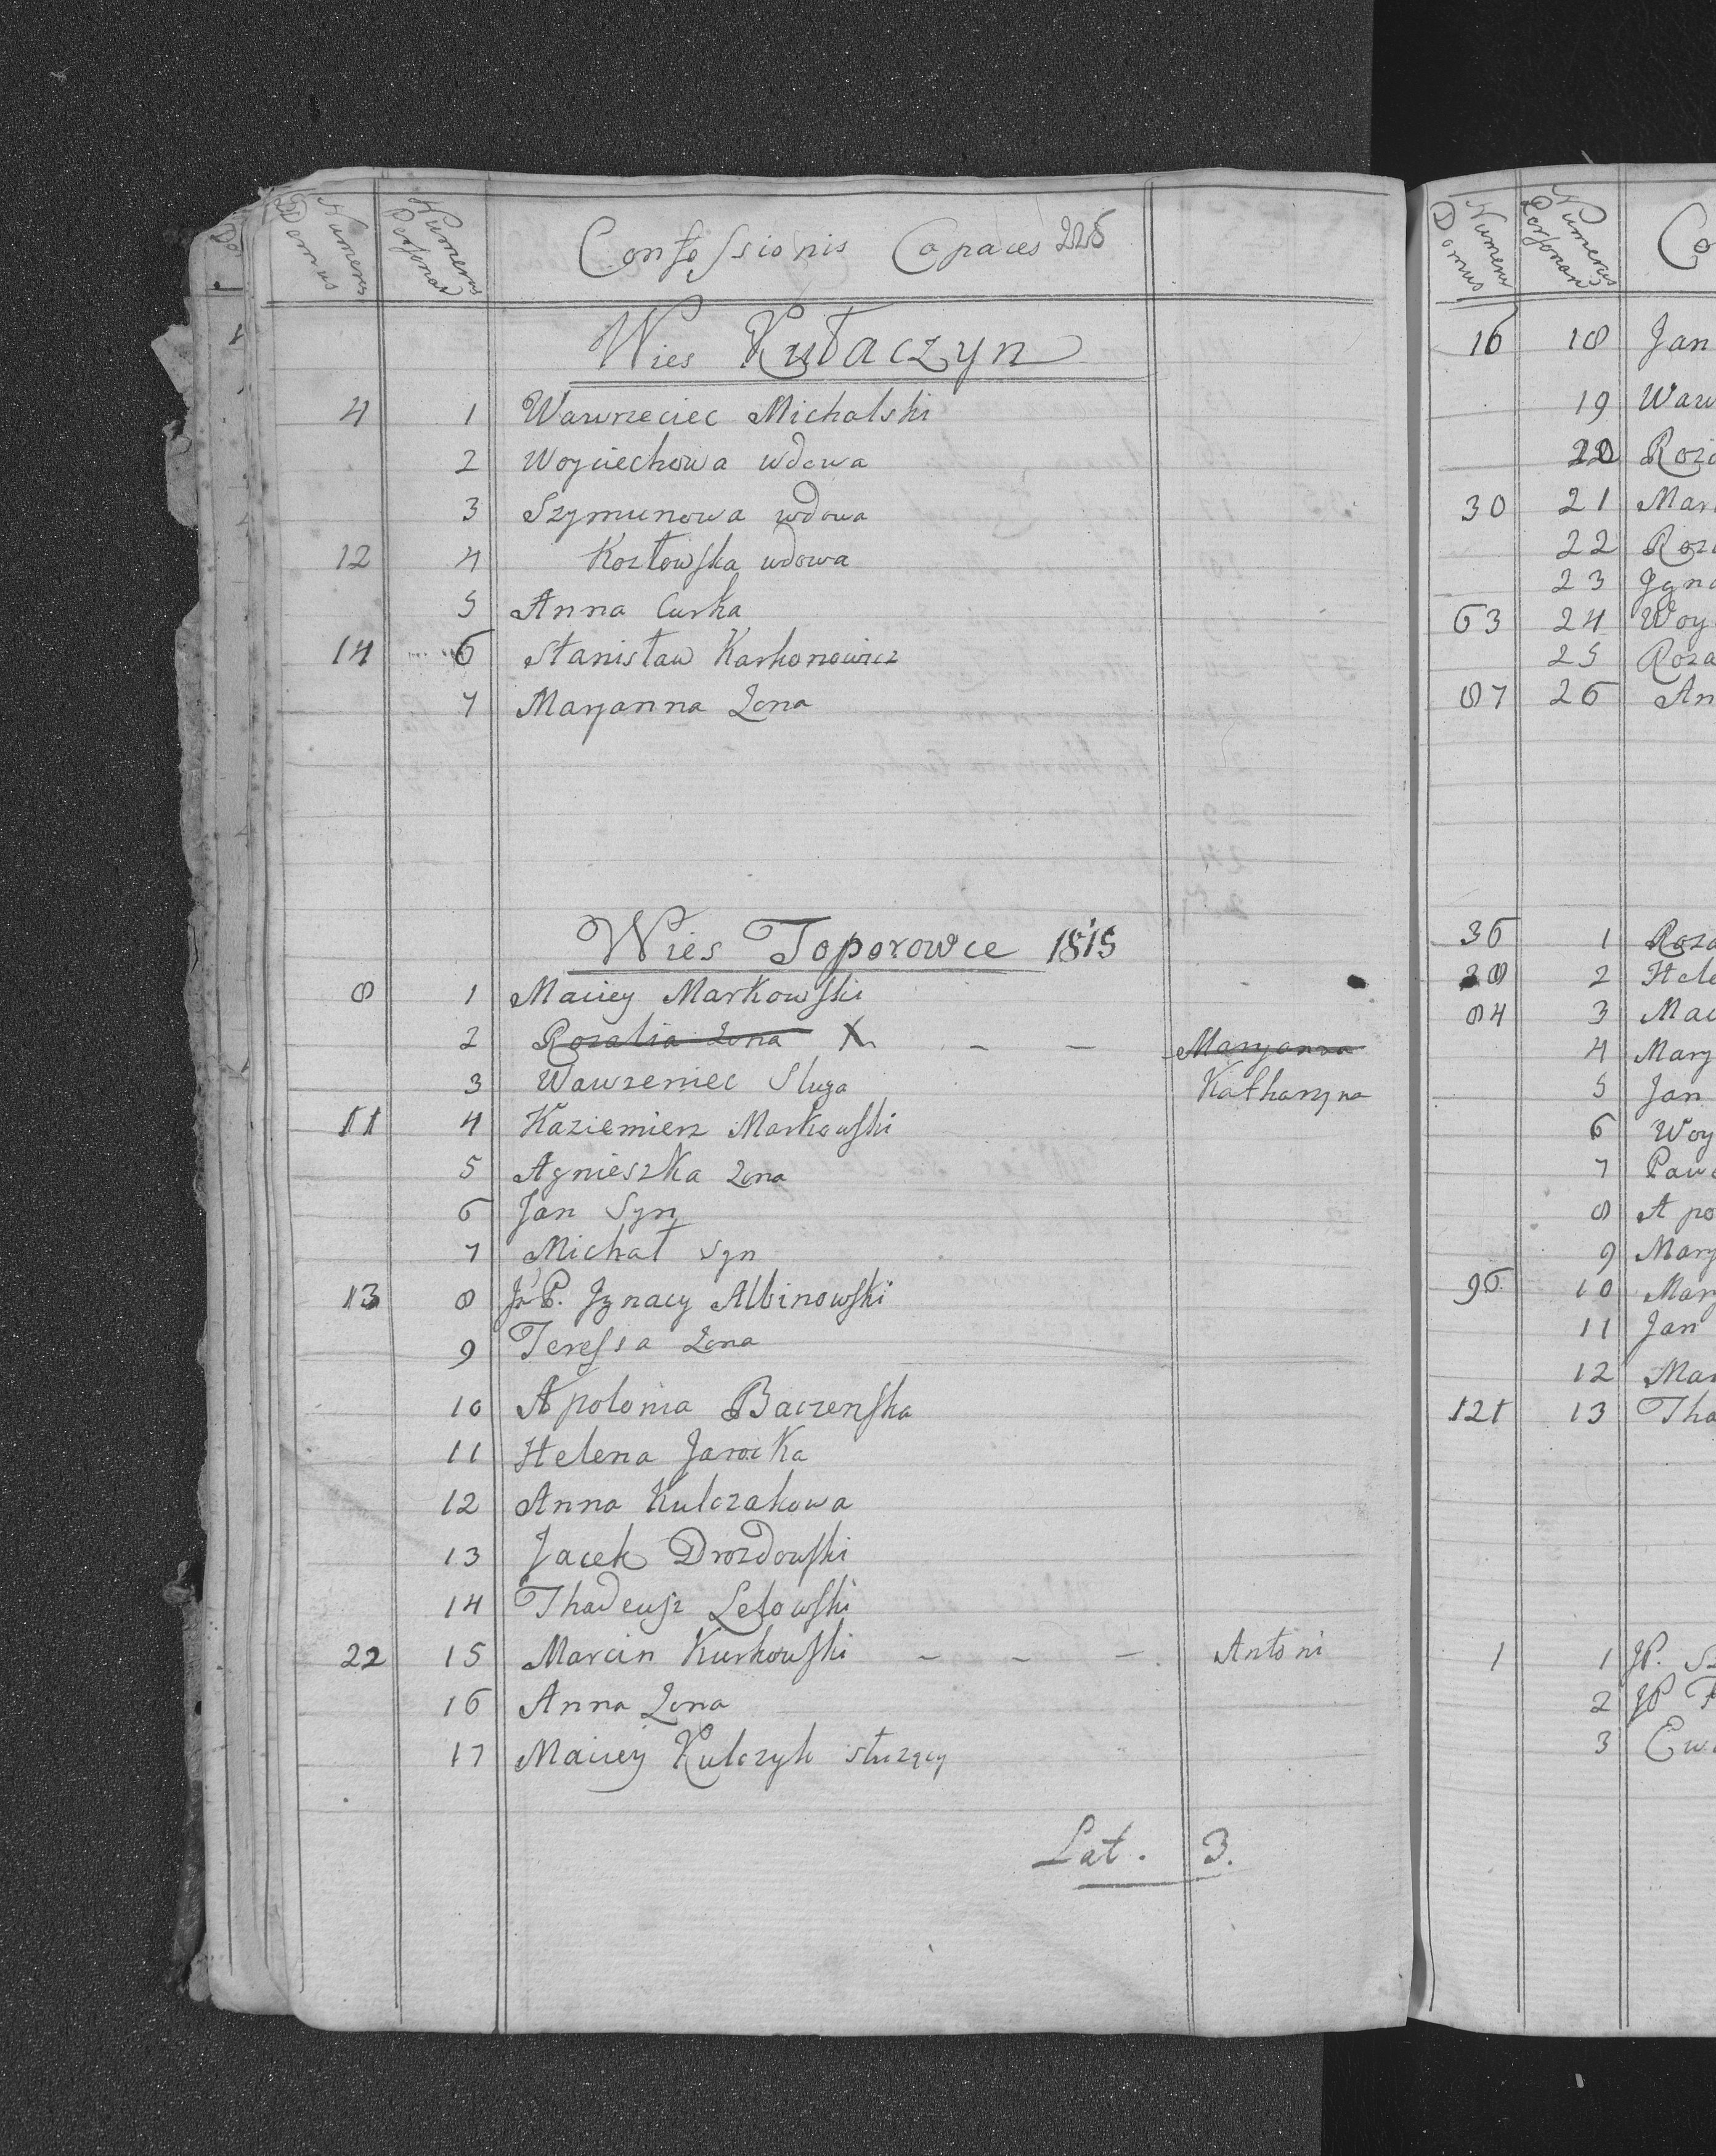 Numerus Domus Numerus Personar Confessionis Capaces 226
Wies Kułaczyn
4 1 Wawrzeciec Michalski
2 Woyciechowa wdowa
3 Szymunowa wdowa
12 4 Kozłowska wdowa
5 Anna Curka
14 6 Stanisław Karhonowicz
7 Maryanna Zona
Wies Toporowce 1815
8 1 Maciey Markowski
2 Rozalia Zona X – – Maryanna
3 Wawrzeniec Sluga Katharyna
11 4 Kaziemierz Markowski
5 Agnieszka Zona
6 Jan Syn
7 Michał Syn
13 8 JP. Jgnacy Albinowski
9 Teressa Zona
10 Apolonia Baczenska
11 Helena Jarocka
12 Anna Kulczakowa
13 Jacek Drozdowski
14 Thadeusz Letowski
22 15 Marcin Kurkowski – – – Antoni
16 Anna Zona
17 Maciey Kulczyk służący
Lat. 3.
Numerus Domus Numerus Personar Co
16 18 Jan
19 Waw
20 Roza
30 21 Mar
22 Roz
23 Jgna
63 24 Woy
25 Roza
87 26 An
36 1 Roza
38 2 Hele
84 3 Mac
4 Mary
5 Jan
6 Woy
7 Paw
8 Apo
9 Mary
96 10 Mary
11 Jan
12 Mar
121 13 Tha
1 1 JP. S
2 JP
3 Ewa